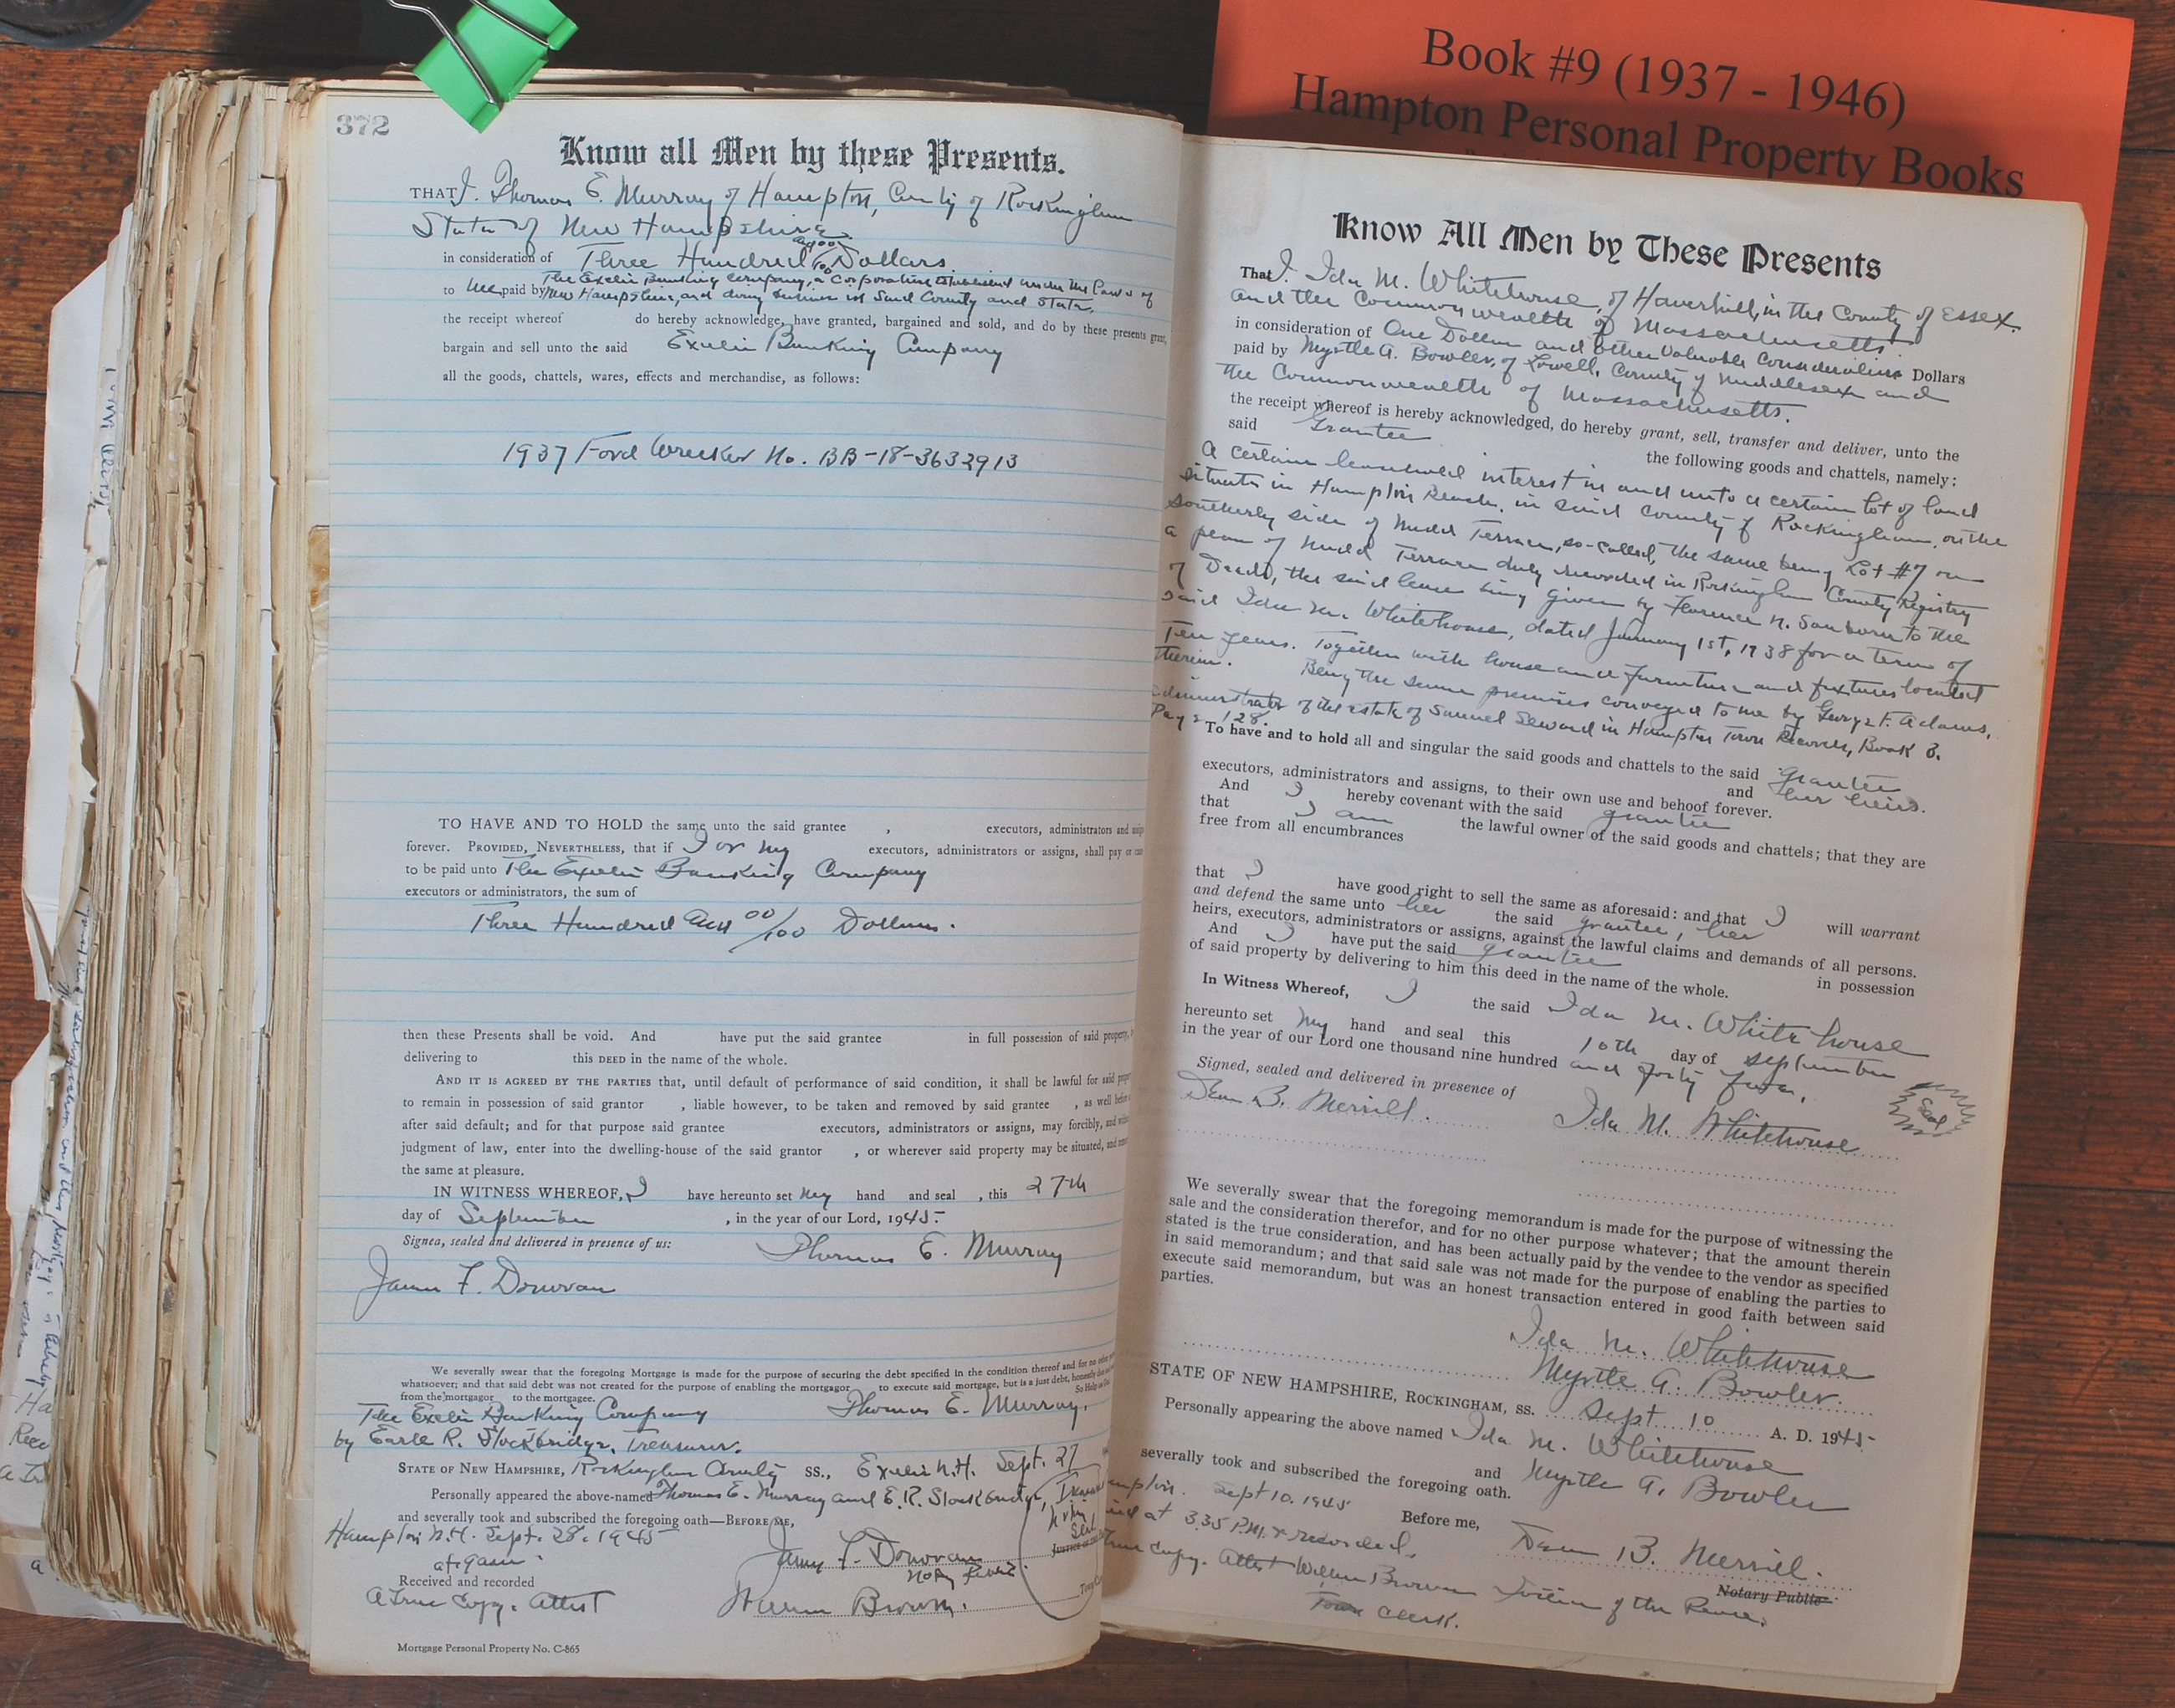 Book #9 (1937 - 1946)
Hampton Personal Property Books
372
Know all Men by these Presents.
THAT I, Thomas E. Murray of Hampton, County of Rockingham
State of New Hampshire
in consideration of Three Hundred and 00/100 Dollars
to me paid by The Exeter Banking Company, a Corporation established under the Laws of
New Hampshire, and doing business in Said County and State,
the receipt whereof do hereby acknowledge, have granted, bargained and sold, and do by these presents grant,
bargain and sell unto the said Exeter Banking Company
all the goods, chattels, wares, effects and merchandise, as follows:
1937 Ford Wrecker No. BB-18-3632913
TO HAVE AND TO HOLD the same unto the said grantee , executors, administrators and
forever. PROVIDED, NEVERTHELESS, that if I or my executors, administrators or assigns, shall pay or
to be paid unto The Exeter Banking Company
executors or administrators, the sum of
Three Hundred and 00/100 Dollars.
then these Presents shall be void. And have put the said grantee in full possession of said property,
delivering to this DEED in the name of the whole.
AND IT IS AGREED BY THE PARTIES that, until default of performance of said condition, it shall be lawful for said
to remain in possession of said grantor , liable however, to be taken and removed by said grantee , as well before
after said default; and for that purpose said grantee executors, administrators or assigns, may forcibly, and
judgment of law, enter into the dwelling-house of the said grantor , or wherever said property may be situated, and
the same at pleasure.
IN WITNESS WHEREOF, I have hereunto set my hand and seal , this 27th
day of September , in the year of our Lord, 1945.
Signed, sealed and delivered in presence of us:
Thomas E. Murray
James F. Donovan
We severally swear that the foregoing Mortgage is made for the purpose of securing the debt specified in the condition thereof and for no other
whatsoever; and that said debt was not created for the purpose of enabling the mortgagor to execute said mortgage, but is a just debt, honestly due
from the mortgagor to the mortgagee. So Help
The Exeter Banking Company Thomas E. Murray.
by Earle R. Stockbridge, Treasurer.
STATE OF NEW HAMPSHIRE, Rockingham County SS., Exeter N.H. Sept. 27
Personally appeared the above-named Thomas E. Murray and E. R. Stockbridge,
and severally took and subscribed the foregoing oath—BEFORE ME,
Hampton N.H. Sept. 28. 1945
at 9am.
James F. Donovan
Notary Public
Seal
Received and recorded
A True Copy. Attest William Brown.
Mortgage Personal Property No. C-865
Know All Men by These Presents
That I, Ida M. Whitehouse, of Haverhill, in the County of Essex
and the Commonwealth of Massachusetts
in consideration of One Dollar and other Valuable Considerations Dollars
paid by Myrtle A. Bowler, of Lowell, County of Middlesex and
the Commonwealth of Massachusetts.
the receipt whereof is hereby acknowledged, do hereby grant, sell, transfer and deliver, unto the
said Grantee the following goods and chattels, namely:
A certain leasehold interest in and unto a certain lot of land
situate in Hampton Beach, in said County of Rockingham, on the
southerly side of Nudd Terrace, so-called, the same being Lot #7 on
a plan of Nudd Terrace duly recorded in Rockingham County Registry
of Deeds, the said lease being given by Florence N. Sanborn to the
said Ida M. Whitehouse, dated January 1st, 1938 for a term of
Ten years. Together with house and furniture and fixtures located
therein. Being the same premises conveyed to me by George F. Adams,
administrator of the estate of Samuel Seward in Hampton Town Records, Book 8.
Page 128.
To have and to hold all and singular the said goods and chattels to the said grantee
and her heirs.
executors, administrators and assigns, to their own use and behoof forever.
And I hereby covenant with the said grantee
that I am the lawful owner of the said goods and chattels; that they are
free from all encumbrances
that I have good right to sell the same as aforesaid: and that I will warrant
and defend the same unto her the said grantee, her
heirs, executors, administrators or assigns, against the lawful claims and demands of all persons.
And I have put the said grantee in possession
of said property by delivering to him this deed in the name of the whole.
In Witness Whereof, I the said Ida M. Whitehouse
hereunto set my hand and seal this 10th day of September
in the year of our Lord one thousand nine hundred and forty
Signed, sealed and delivered in presence of
Dean B. Merrill. Ida M. Whitehouse
Seal
We severally swear that the foregoing memorandum is made for the purpose of witnessing the
sale and the consideration therefor, and for no other purpose whatever; that the amount therein
stated is the true consideration, and has been actually paid by the vendee to the vendor as specified
in said memorandum; and that said sale was not made for the purpose of enabling the parties to
execute said memorandum, but was an honest transaction entered in good faith between said
parties.
Ida M. Whitehouse
Myrtle A. Bowler.
STATE OF NEW HAMPSHIRE, ROCKINGHAM, SS. Sept 10 A. D. 1945
Personally appearing the above named Ida M. Whitehouse
and Myrtle A. Bowler
severally took and subscribed the foregoing oath.
Sept 10. 1945 Before me,
at 3.35 P.M. & recorded.
Dean B. Merrill.
Copy. Attest William Brown Justice of the Peace.
Notary Public
Town Clerk.